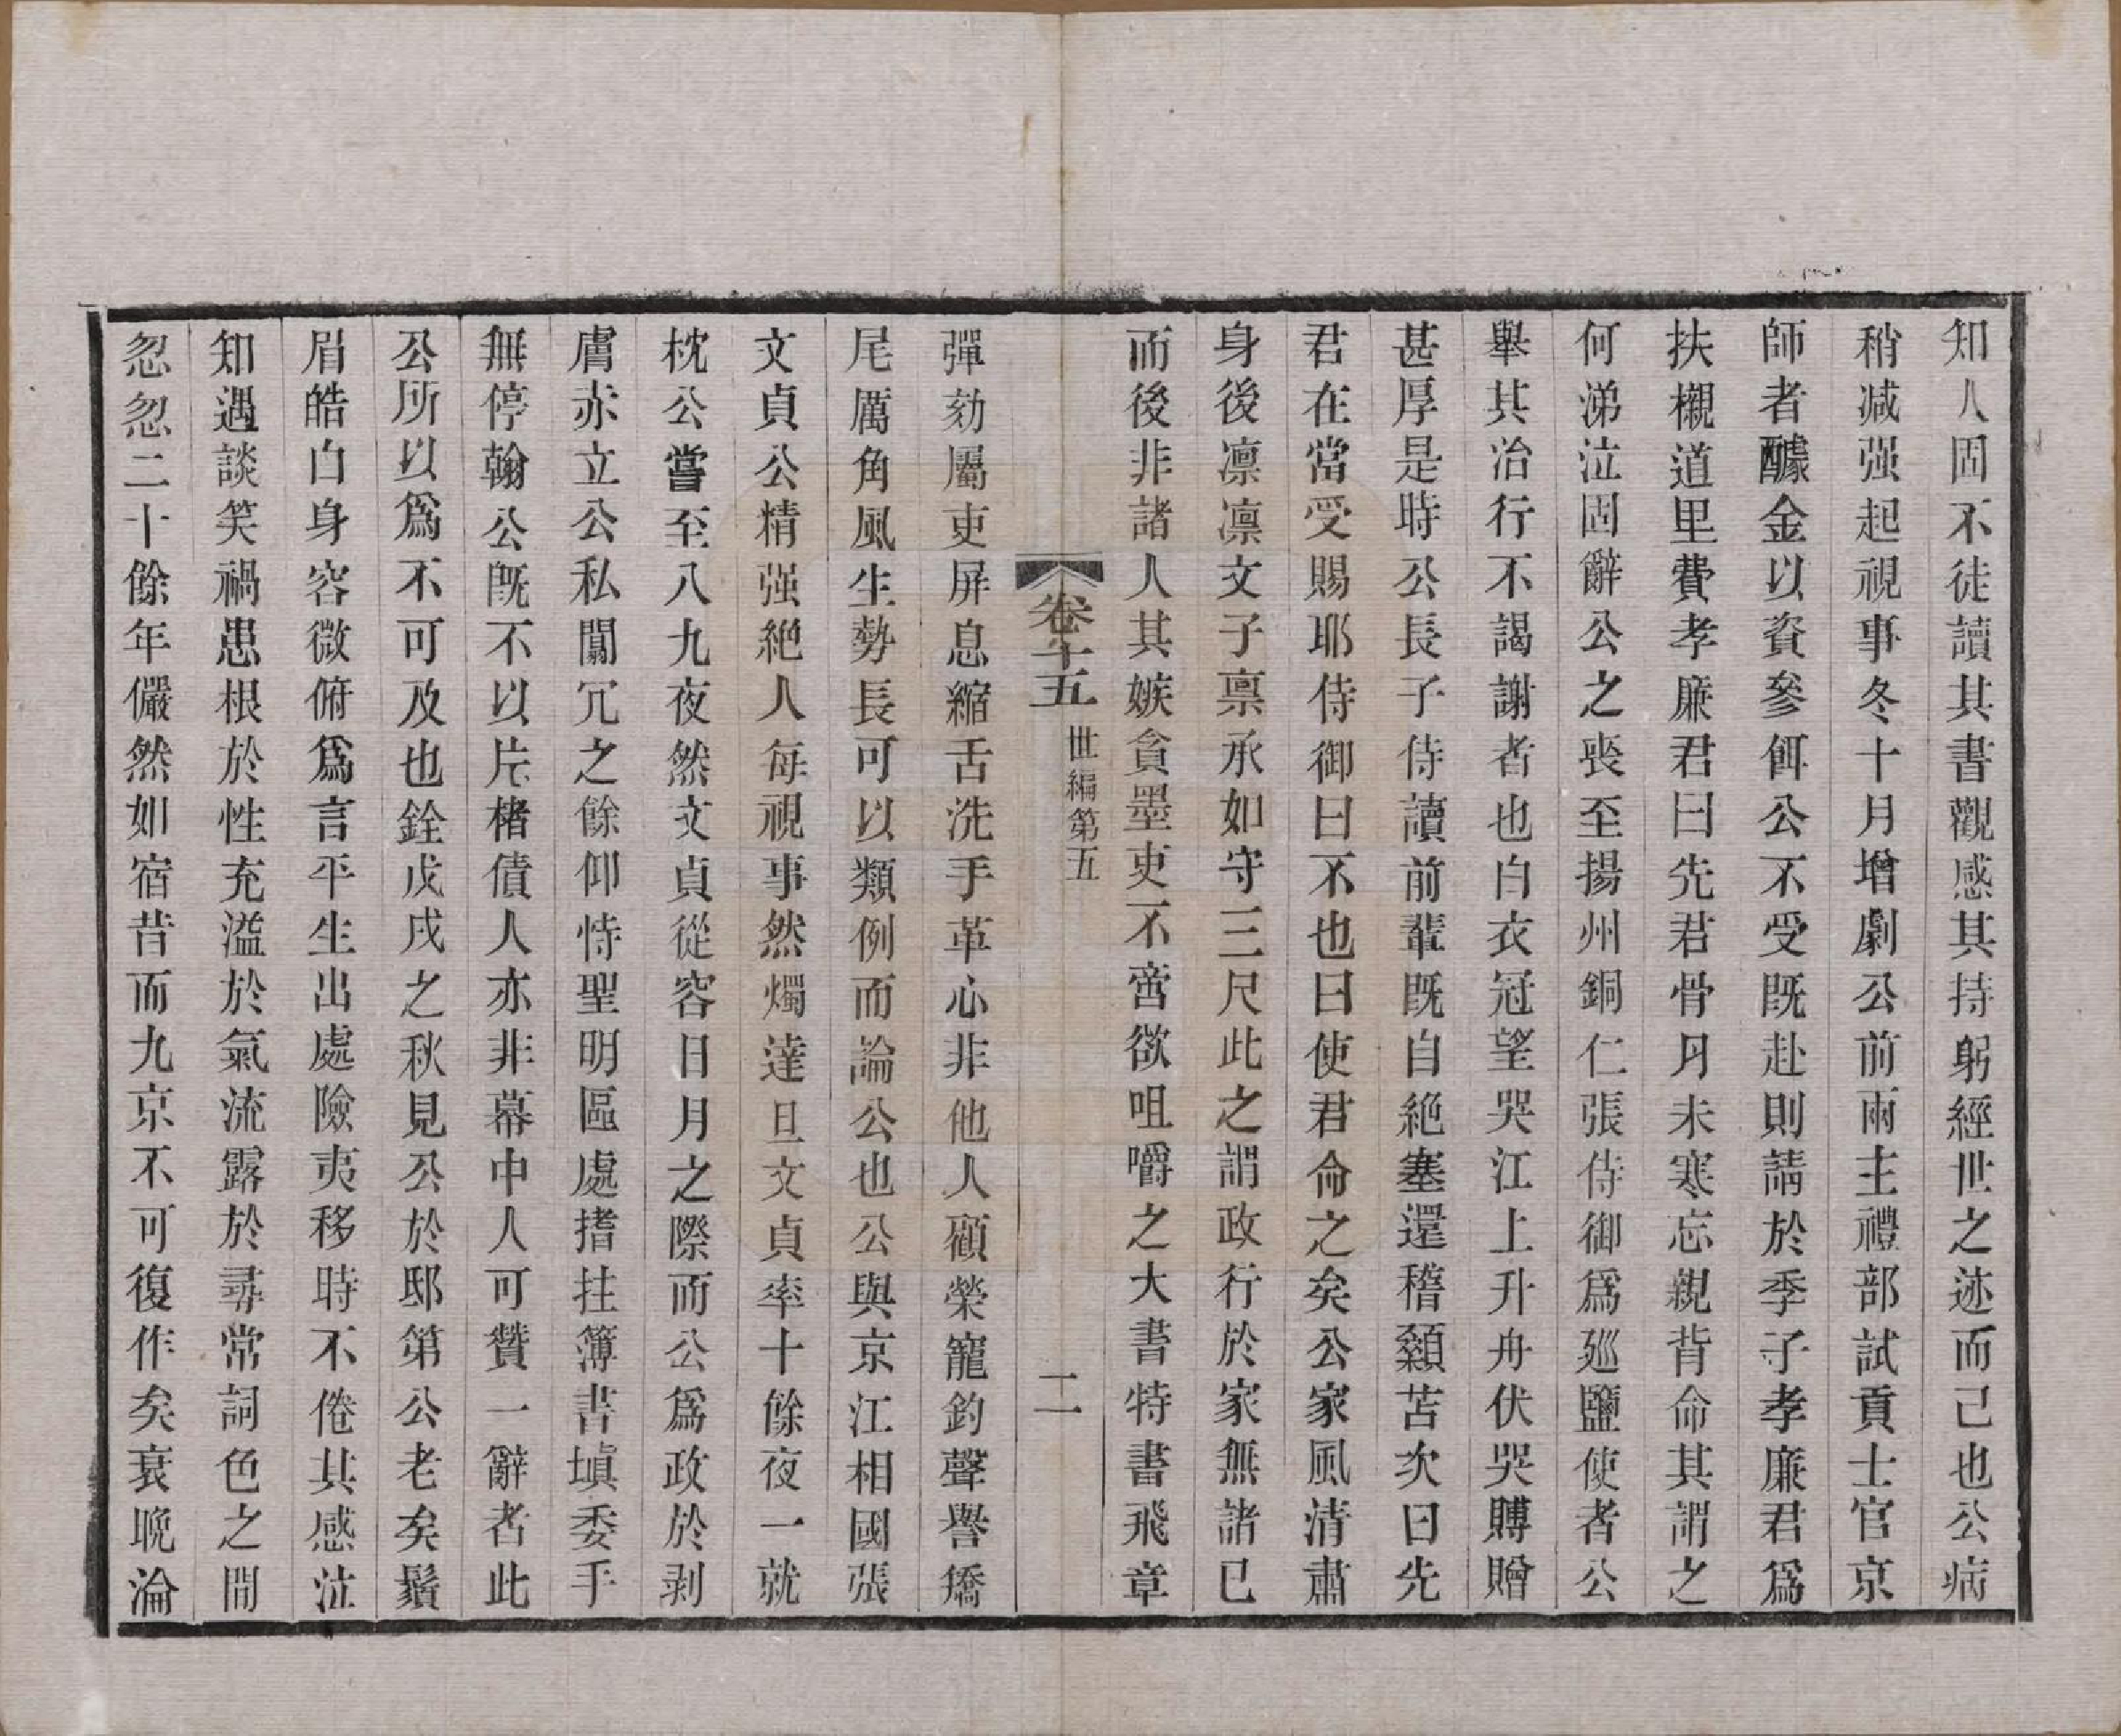 知人固不徒讀其書觀感其持躬經世之迹而已也公病
稍減强起視事冬十月增劇公前兩主禮部試貢士官京
師者醵金以資參餌公不受既赴則請於季子孝廉君爲
扶櫬道里費孝廉君曰先君骨月未寒忘親背命其謂之
何涕泣固辭公之喪至揚州銅仁張侍御爲廵鹽使者公
舉其治行不謁謝者也白衣冠望哭江上升舟伏哭賻贈
甚厚是時公長子侍讀前輩既自絶塞還稽顙苫次曰先
君在當受賜耶侍御曰不也曰使君命之矣公家風清肅
身後凛凛文子禀承如守三尺此之謂政行於家無諸已
而後非諸人其嫉貪墨吏不啻欲咀嚼之大書特書飛章
卷十五 世編第五 二
彈劾屬吏屏息縮舌洗手革心非他人顧榮寵釣聲譽撟
尾厲角風生勢長可以類例而論公也公與京江相國張
文貞公精强絶人每視事然燭達旦文貞率十餘夜一就
枕公嘗至八九夜然文貞從容日月之際而公爲政於剥
膚赤立公私闒冗之餘仰恃聖明區處搘拄簿書塡委手
無停翰公既不以片楮債人亦非幕中人可贊一辭者此
公所以爲不可及也銓戊戌之秋見公於邸第公老矣鬚
眉皓白身容微俯爲言平生出處險夷移時不倦其感泣
知遇談笑禍患根於性充溢於氣流露於尋常詞色之間
忽忽二十餘年儼然如宿昔而九京不可復作矣衰晚淪